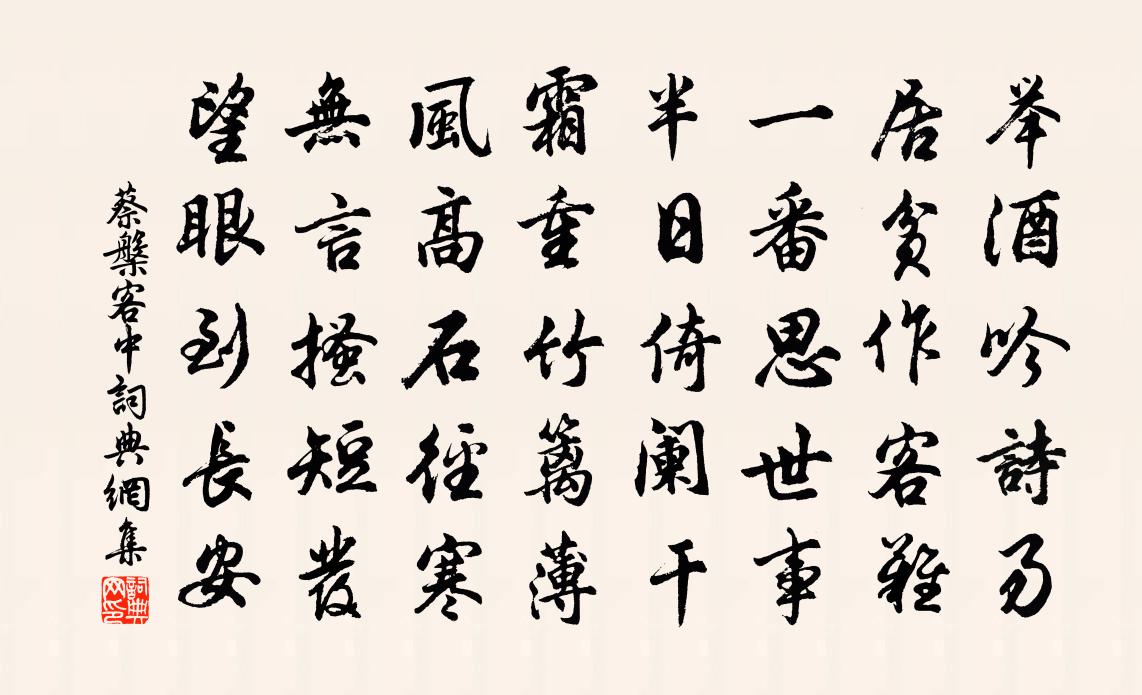 举酒吟詩易
居贫作客難
一番思世事
半日倚阑干
霜重竹籬薄
風高石徑寒
無言搔短發
望眼到長安
蔡槃客中詞典網集
詞典网印